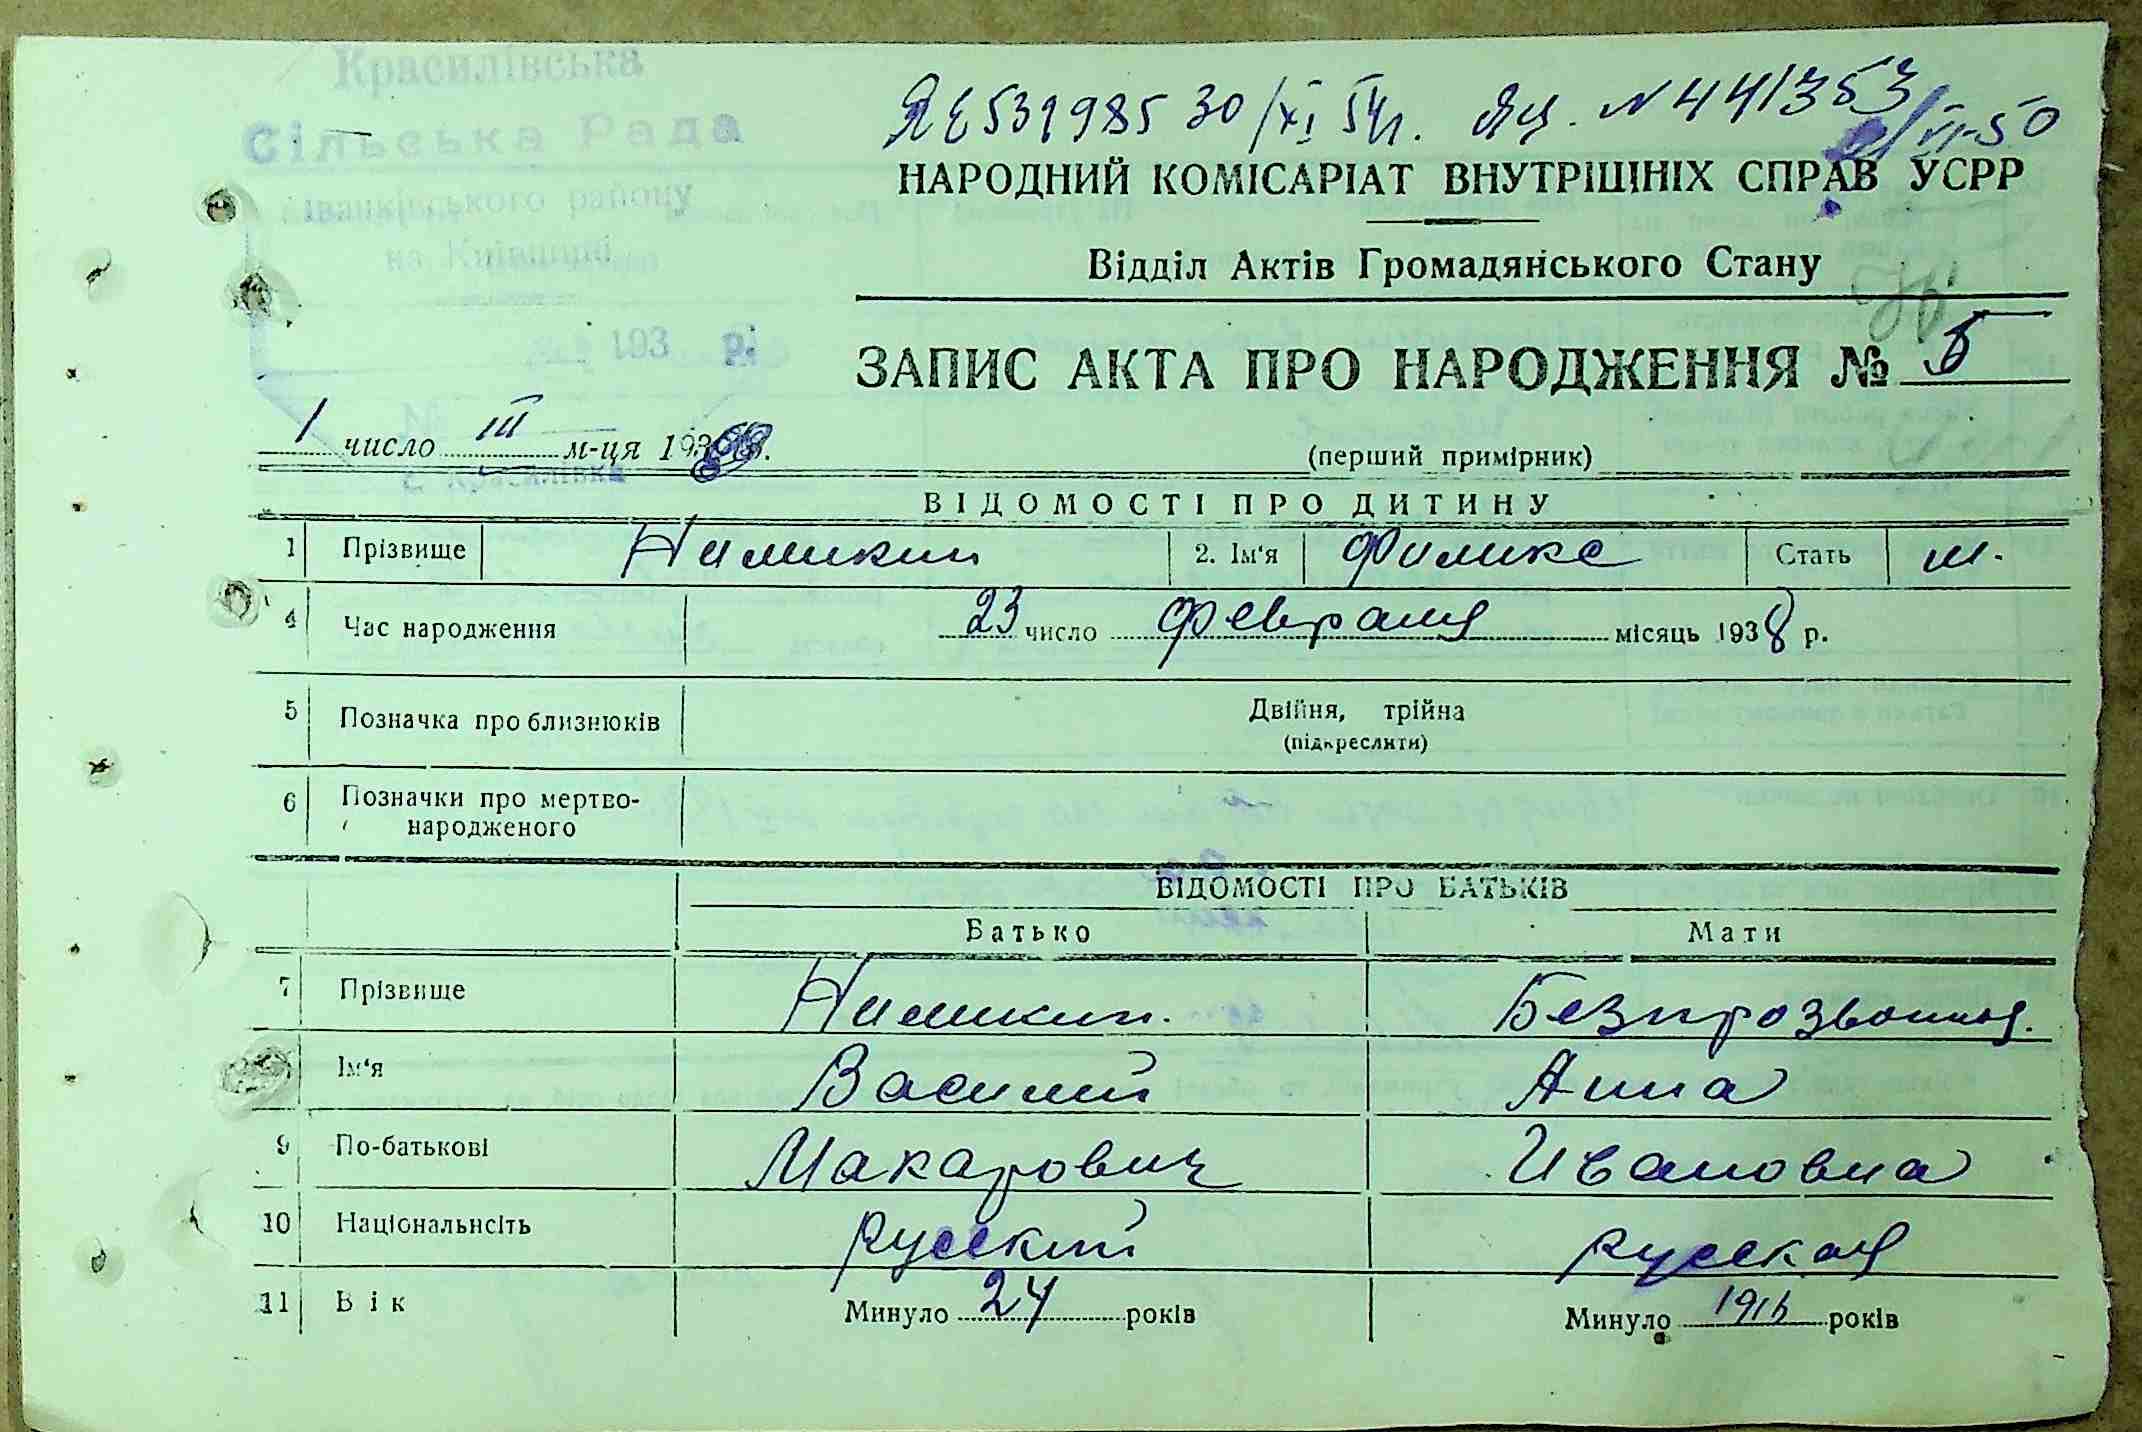 Красилівська
Сільська Рада
Іванківського району
на Київщині
193 р.
№
с. Красилівка
ЯЕ 539985 30/XI 54г. Яц. N 441353
НАРОДНИЙ КОМІСАРІАТ ВНУТРІШНІХ СПРАВ УСРР
Відділ Актів Громадянського Стану
ЗАПИС АКТА ПРО НАРОДЖЕННЯ № 5
1 число III м-ця 193
(перший примірник)
ВІДОМОСТІ ПРО ДИТИНУ
1 Прізвище Нимикин 2. Ім'я Филикс Стать м.
4 Час народження 23 число Февраля місяць 1938 р.
5 Позначка про близнюків Двійня, трійна
(підкреслити)
6 Позначки про мертво-
народженого
ВІДОМОСТІ ПРО БАТЬКІВ
Батько Мати
7 Прізвище Нимикин. Безпрозвонная.
Ім'я Василий Анна
9 По-батькові Макарович Ивановна
10 Національнсіть русский русская
11 Вік Минуло 24 років Минуло 1916 років